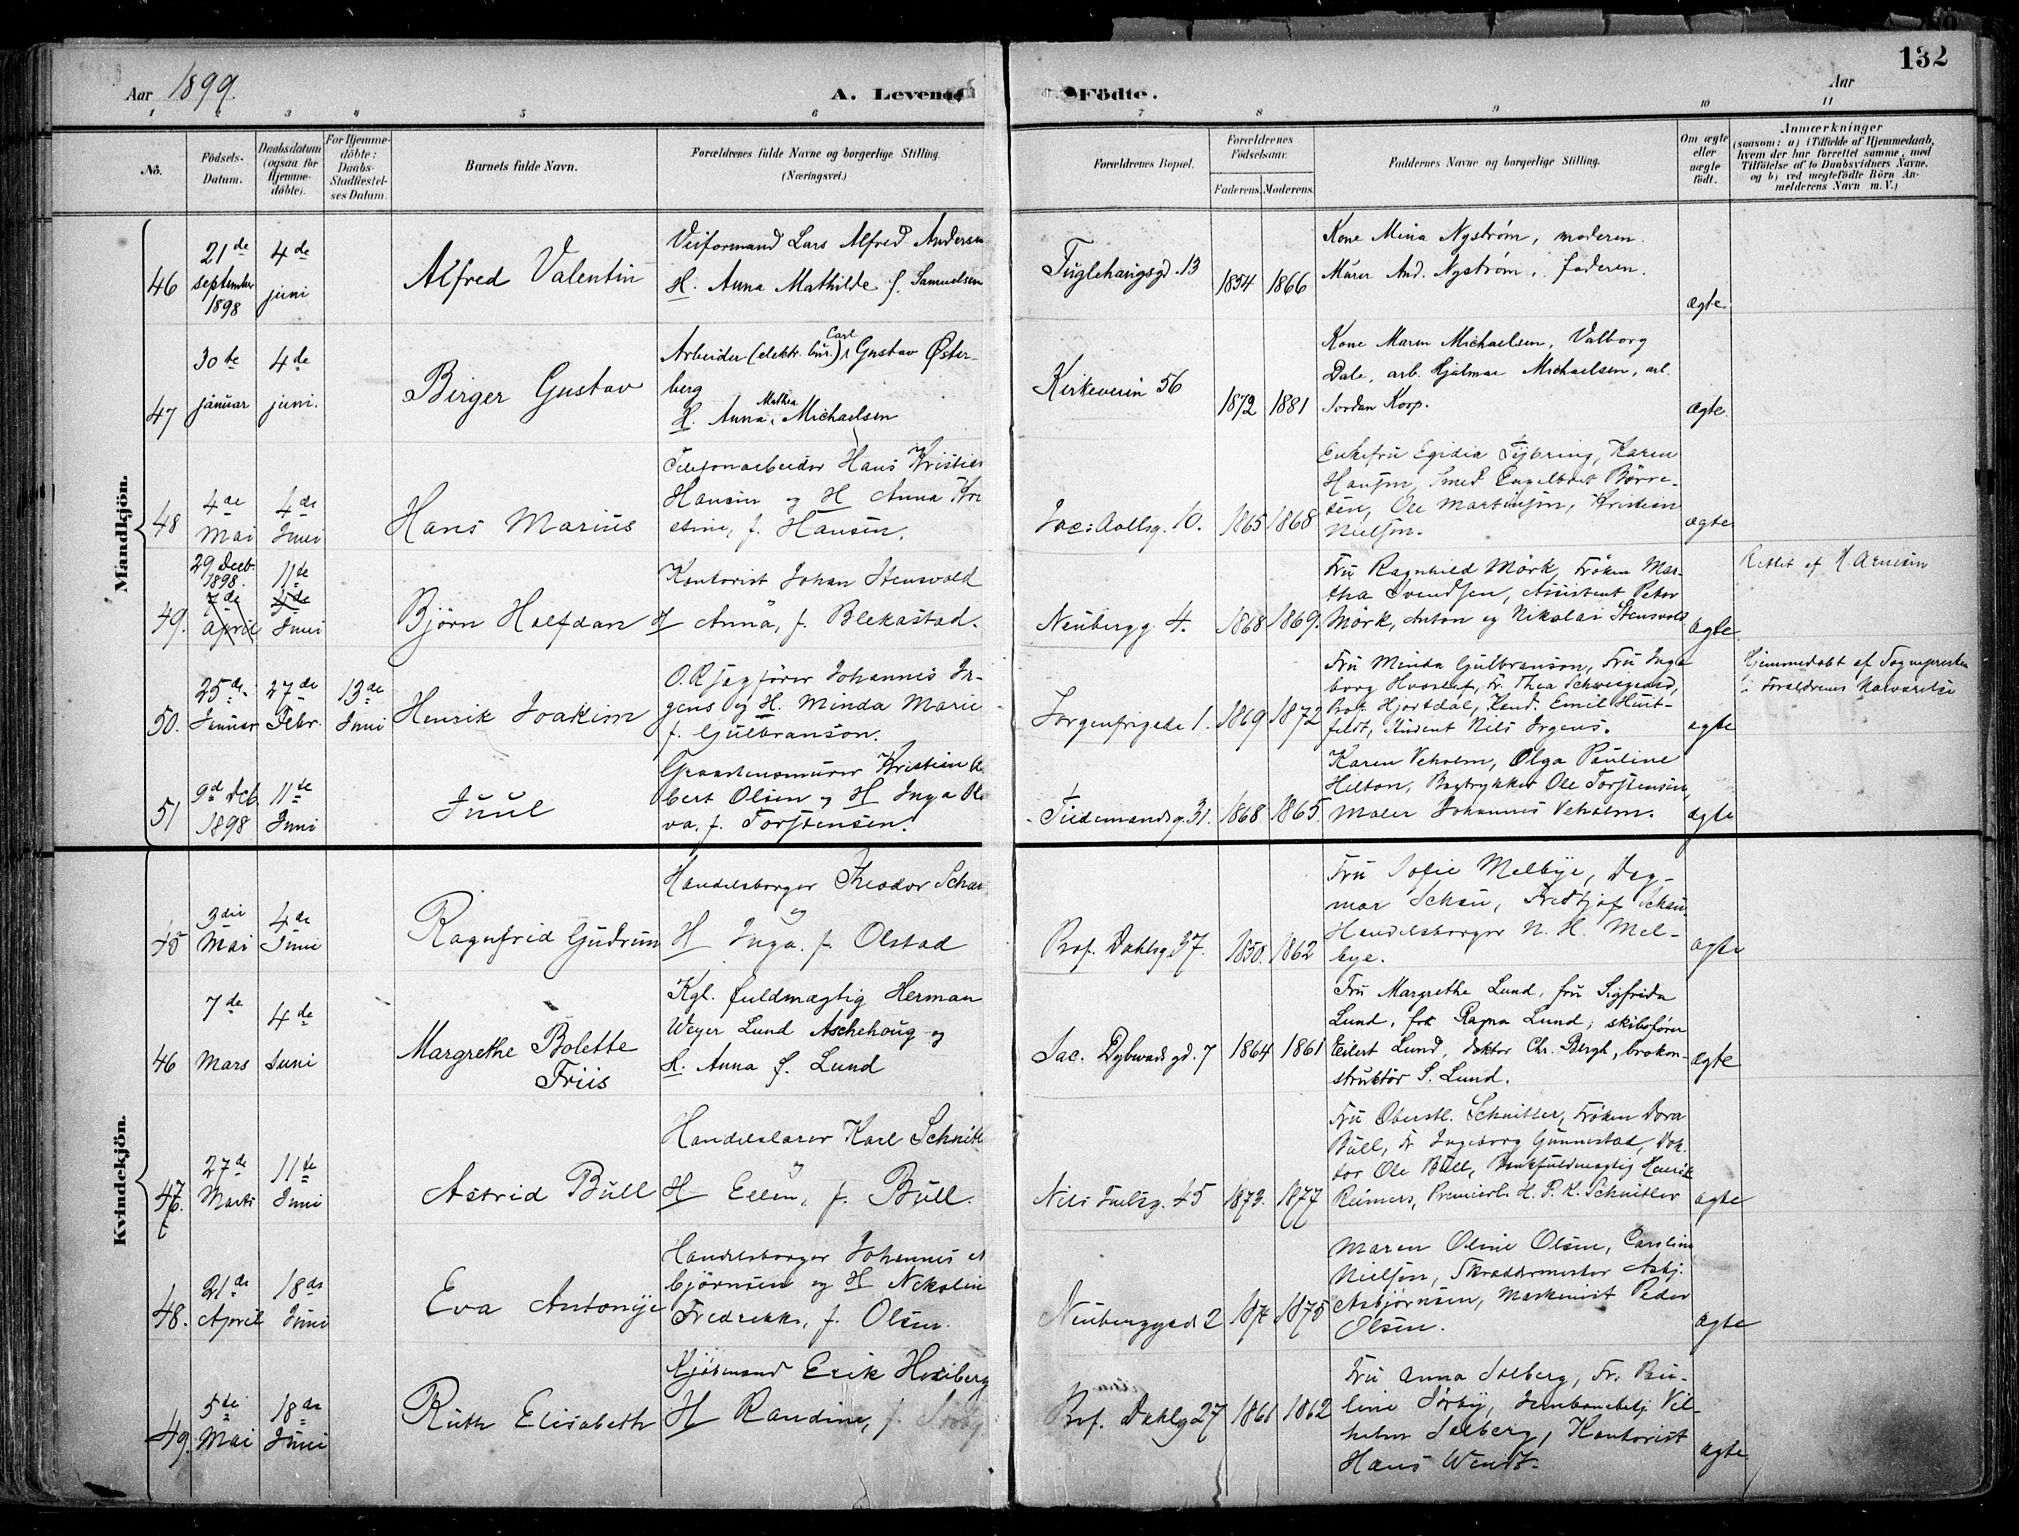 132
Aar 1899.
A. Levende Födte.
Aar
1 2 3 4 5 6 7 8 9 10 11
No.
Födsels-Datum.
Daabsdatum (ogsaa for Hjemme-döbte).
For Hjemme-döbte: Daabs-Stadfæstel-ses Datum.
Barnets fulde Navn.
Forældrenes fulde Navne og borgerlige Stilling.
(Næringsvei.)
Forældrenes Bopæl.
Forældrenes Födselsaar.
Faderens. Moderens.
Faddernes Navne og borgerlige Stilling.
Om ægte eller uægte födt.
Anmærkninger
(saasom: a) i Tilfælde af Hjemmedaab,
hvem der har forrettet samme, med
Tilföielse af to Daabsvidners Navne,
og b) ved uægtefödte Börn An-
melderens Navn m. V.)
Mandkjön.
46
21de september 1898
4de juni
Alfred Valentin
Veiformand Lars Alfred Andersen
H. Anna Mathilde f. Samuelsen
Fuglehaugsgd. 13
1854 1866
Kone Mina Nystrøm, moderen.
Murer And. Nystrøm, faderen.
ægte
47
30te januar
4de juni.
Birger Gustav
Arbeider (elektr. bur.) Carl Gustav Øster-
berg
H. Anna Mathea Michaelsen
Kirkeveien 56
1872 1881
Kone Maren Michaelsen, Valborg
Dale, arb. Hjalmar Michaelsen, arb.
Jordan Korp.
ægte
48
4de Mai
4de Juni
Hans Marius
Telefonarbeider Hans Kristian
Hansen og H Anna Kri
stine, f. Hansen.
Jac: Aallsg. 10.
1865 1868
Enkefru Egidia Fybring, Karen
Hansen, Smed Engelbret Børre-
sen, Ole Martinsen, Kristian
Nielsen.
ægte
49.
29 Decb. 1898.
7de April
11te
4de
Juni
Björn Halfdan
Kontorist Johan Stensvold
H Anna, f. Blekastad.
Neubergg. 4.
1868 1869.
Fru Ragnhild Mörk, Fröken Mar-
tha Svendsen, Assistent Peter
Mörk, Anton og Nikolai Stensvold
ægte
Rettet af H Arnesen
50.
25de Januar
27de Febr.
13de Juni
Henrik Joakim
O.R. Sagfører Johannes Ir-
gens og H. Minda Marie
f. Gulbranson.
Sorgenfrigade 1.
1869 1872
Fru Minda Gulbranson, Fru Inge
borg Hvoslef, Fr. Thea Schweigaard,
Prof. Hjortdal, Kand. Emil Huit-
feldt, Student Nils Irgens.
ægte
Hjemmedøbt af Sognepresten
i Forældrenes Nærværelse
51
9d Deb. 1898
11te Juni
Juul
Graastensmurer Kristian Al
bert Olsen og H Inga Ol
va, f. Torstensen.
Tidemandsg. 31.
1868 1865.
Karen Veholm, Olga Pauline
Hilton, Bogtrykker Ole Torstensen,
Maler Johannes Veholm.
ægte
Kvindekjön.
45
3die Mai
4de Juni
Ragnfrid Gudrun
Handelsborger Theodor Schau
og
H Inga f. Olstad
Prof. Dahlsg. 37.
1850. 1862
Fru Sofie Melbye, Dag-
mar Schau, Fredtjof Schau,
Handelsborger N. H. Mel-
bye.
ægte
46
7de Mars
4de Juni
Margrethe Bolette
Friis
Kgl. fuldmægtig Herman
Weyer Lund Aschehoug og
H. Anna f. Lund
Jac. Dybwads gd. 7
1864 1861
Fru Margrethe Lund, fru Sigfrida
Lund, frk Ragna Lund; skibsfører
Eilert Lund, doktor Chr. Bergh, brokon-
struktør S. Lund.
ægte
47.
27de Marts
11te Juni
Astrid Bull
Handelslærer Karl Schnitl
og
H Ellen, f. Bull.
Nils Juelsg. 45
1873. 1877
Fru Oberstl. Schnitler, Fröken Dora
Bull, Fr. Ingeborg Gunnestad, Dok-
tor Ole Bull, Bankfuldmægtig Henrik
Reimers, Premierl. H. P. K. Schnitler
ægte
48.
21de April
18de Juni
Eva Antonije
Handelsborger Johannes A
bjørnsen og H Nekoline
Fredrikke, f. Olsen.
Neuberggad 2
1874 1875
Maren Oline Olsen, Caroline
Nielsen, Skræddermester Asbj.
Asbjørnsen, Maskinist Peder
Olsen.
ægte
49.
5te Mai
18de Juni
Ruth Elisabeth
Kjøbmand Erik Heiberg
H Randine, f. Sørby
Prof. Dahlsg 27
1861 1862
Fru Anna Solberg, Fr. Pau-
line Sørby, Jernbanebetj. Vil-
helm Solberg, Kontorist
Hans Wendt.
ægte